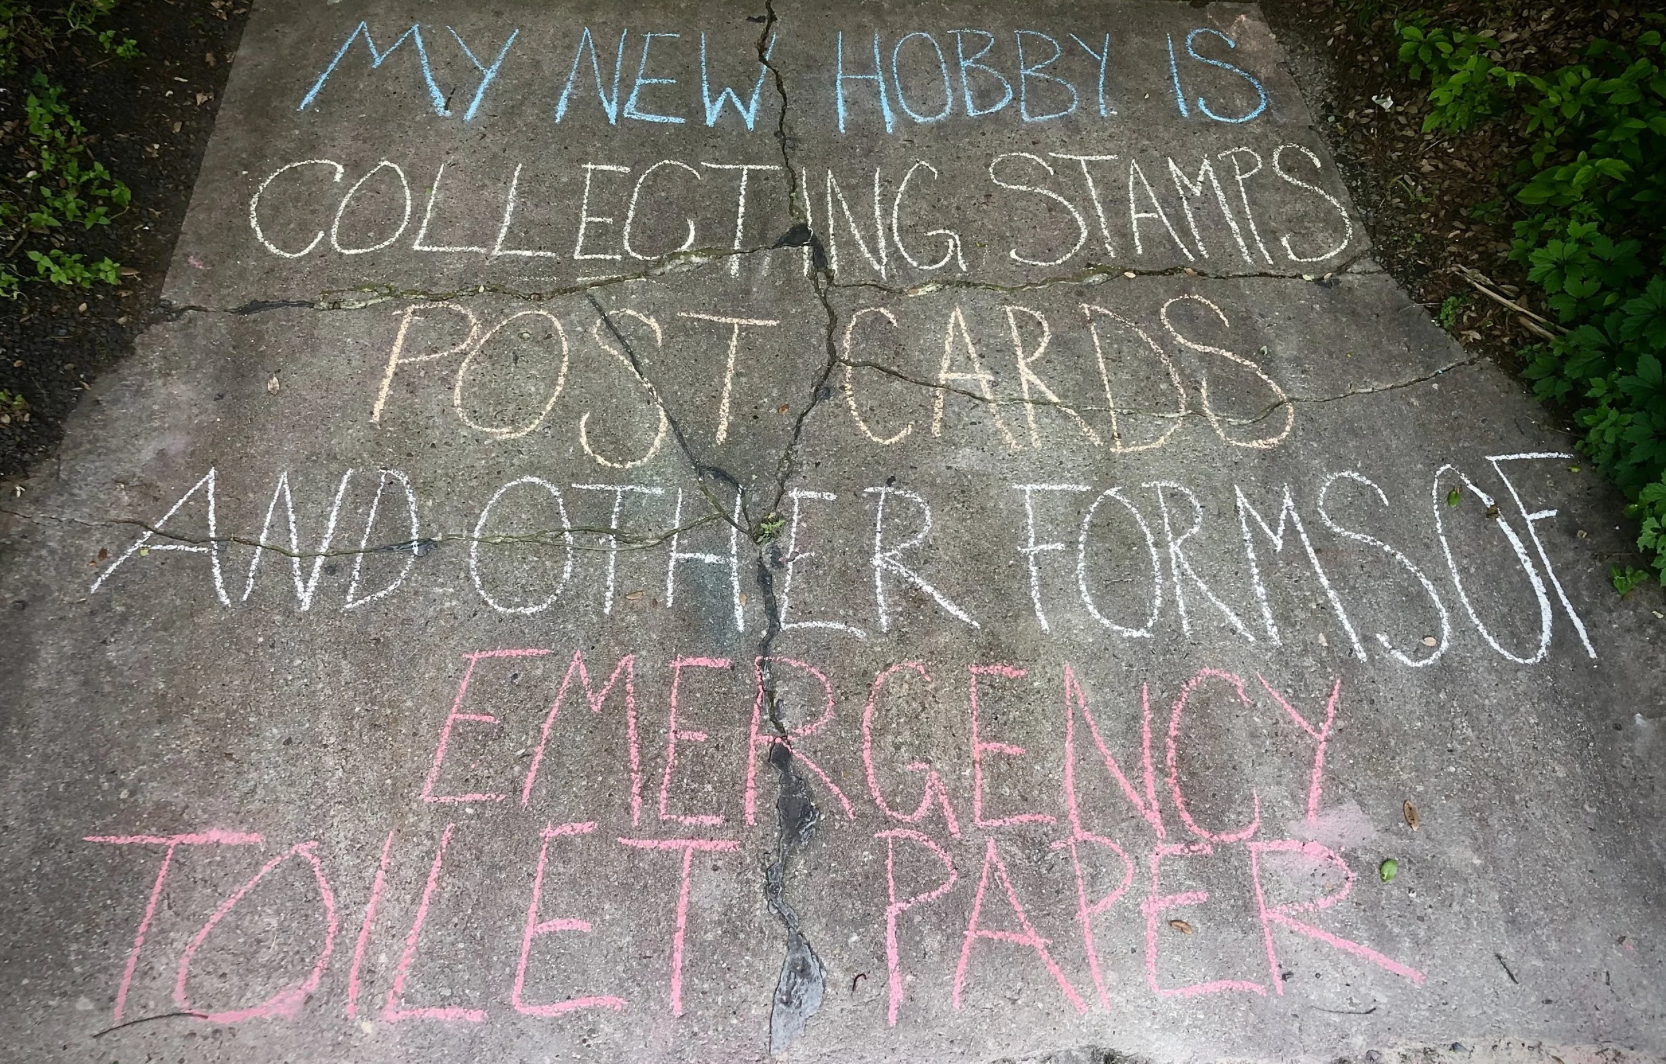 MY NEW HOBBY IS
COLLECTING STAMPS
POST CARDS
AND OTHER FORMS OF
EMERGENCY
TOILET PAPER